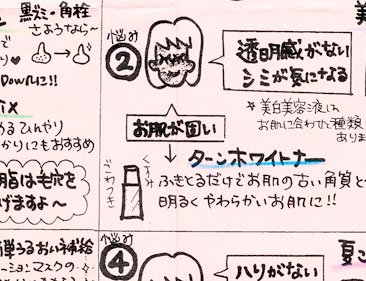 黒ズミ・角栓
さようなら〜
Downに!!
めるひんやり
かりにもおすすめ
脂は毛穴を
げますよ〜
単うるおい補給
ーションマスクの
悩み
②
透明感がない
シミが気になる
*美白美容液は
お肌に合わせた種類
ありま
お肌が固い
↓ターンホワイトナー
くすみ
ごわつき
ふきとるだけでお肌の古い角質と
明るくやわらかいお肌に!!
悩み
④
ハリがない
夏こ